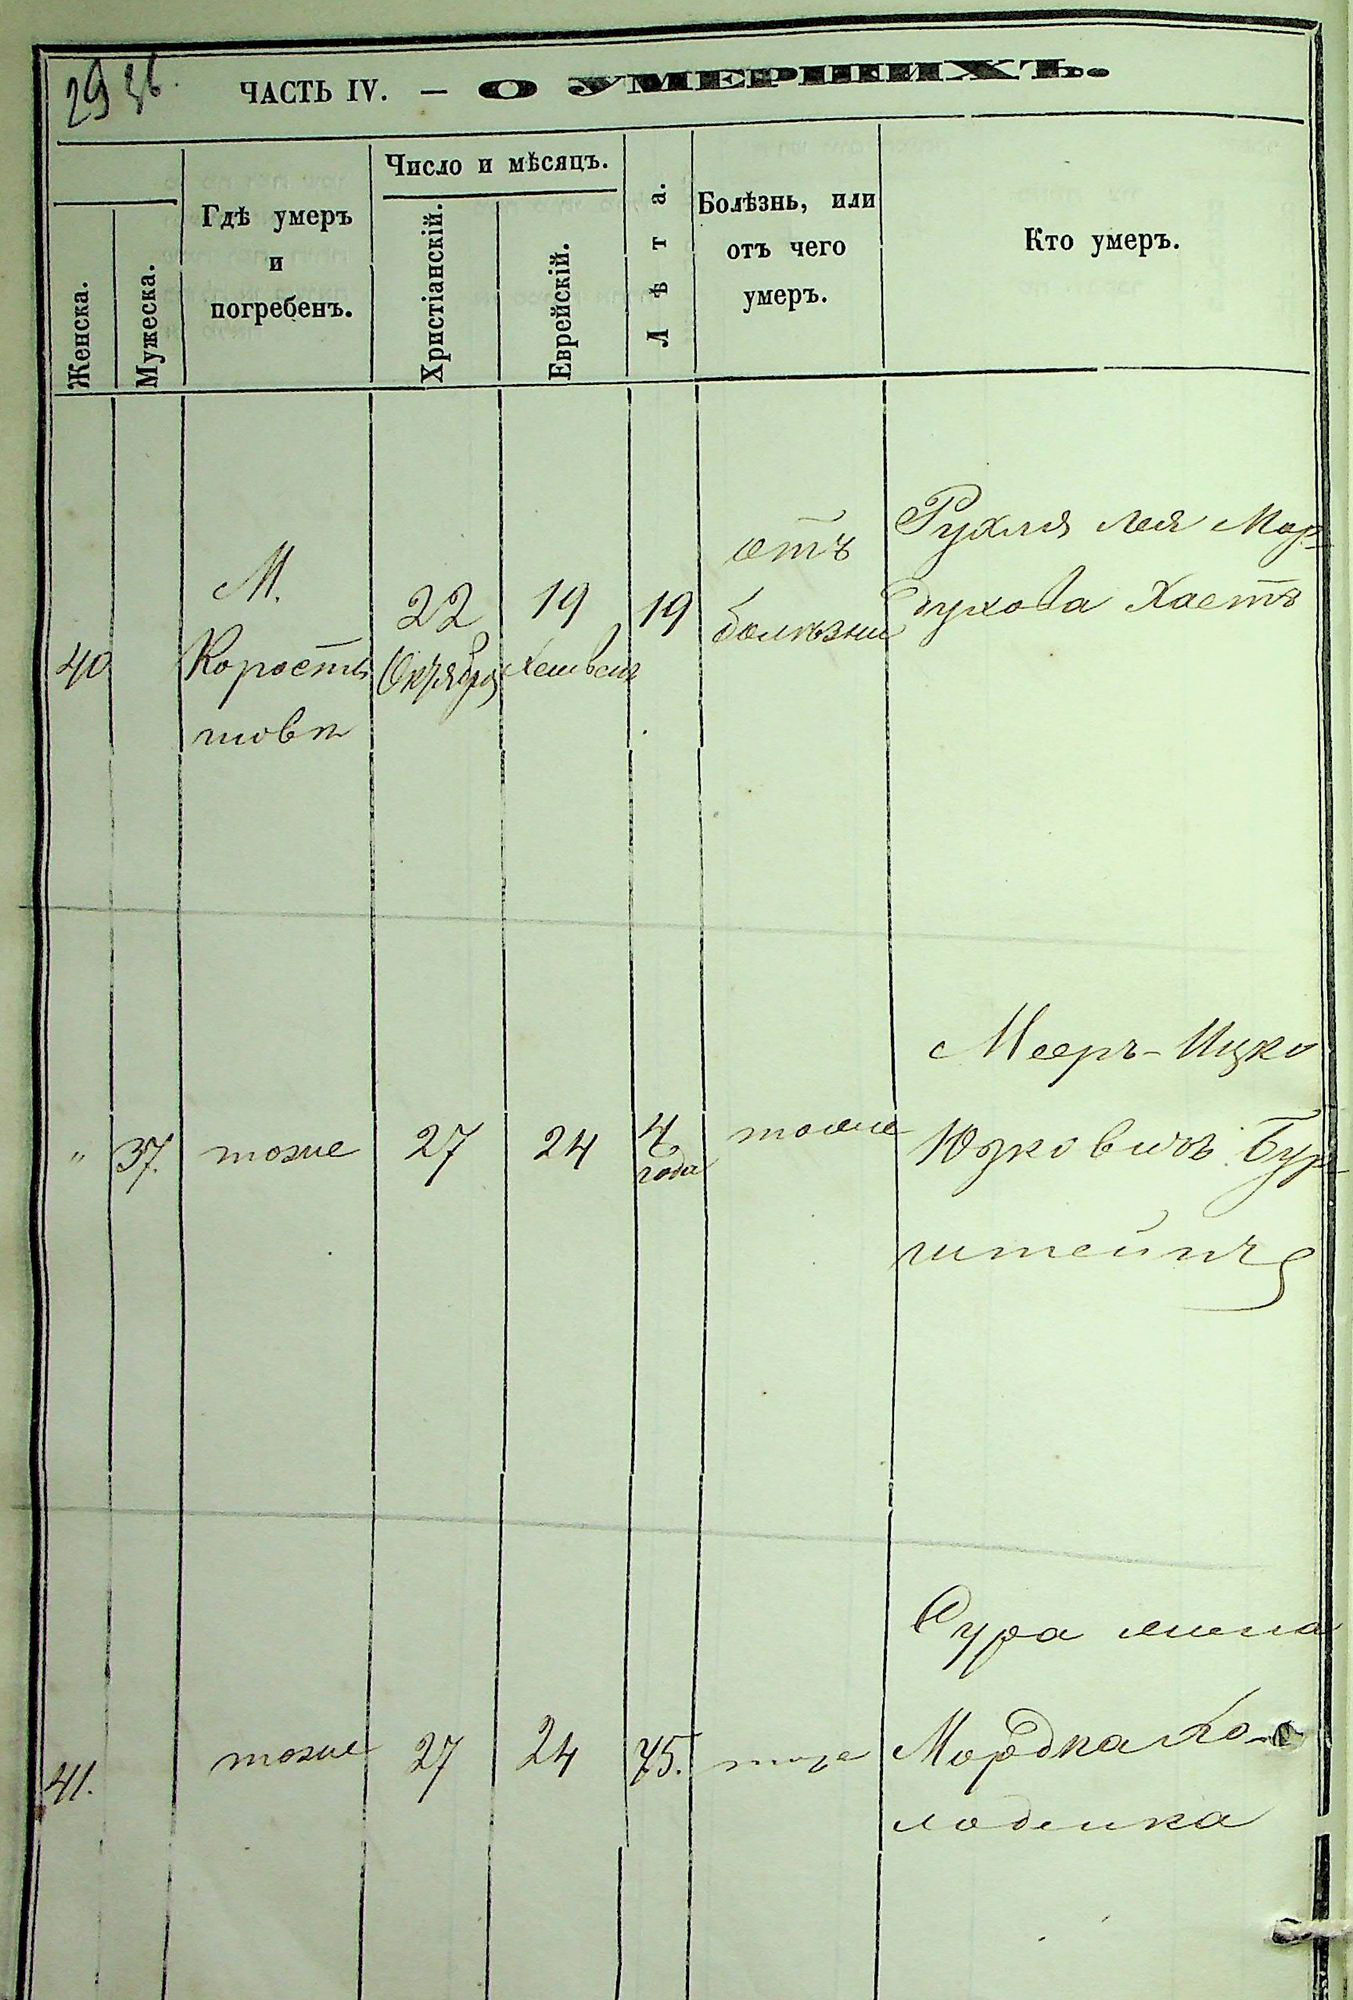 29
ЧАСТЬ IV. — О УМЕРШИХЪ.
Женска.
Мужеска.
Гдѣ умеръ
и
погребенъ.
Число и мѣсяцъ.
Христіанскій.
Еврейскій.
Лѣта.
Болѣзнь, или
отъ чего
умеръ.
Кто умеръ.
40
М.
Коросты
шовѣ
22
Октября
19
Хешвен
19
отъ
болѣзни
Рухля Лея Мор-
духова Хаетъ
"
37.
тоже
27
24
4
года
тоже
Мееръ-Ицко
Юзковичъ Бур-
штейнъ
41.
тоже
27
24
75.
тоже
Сура жена
Мордка Ко-
лоденка